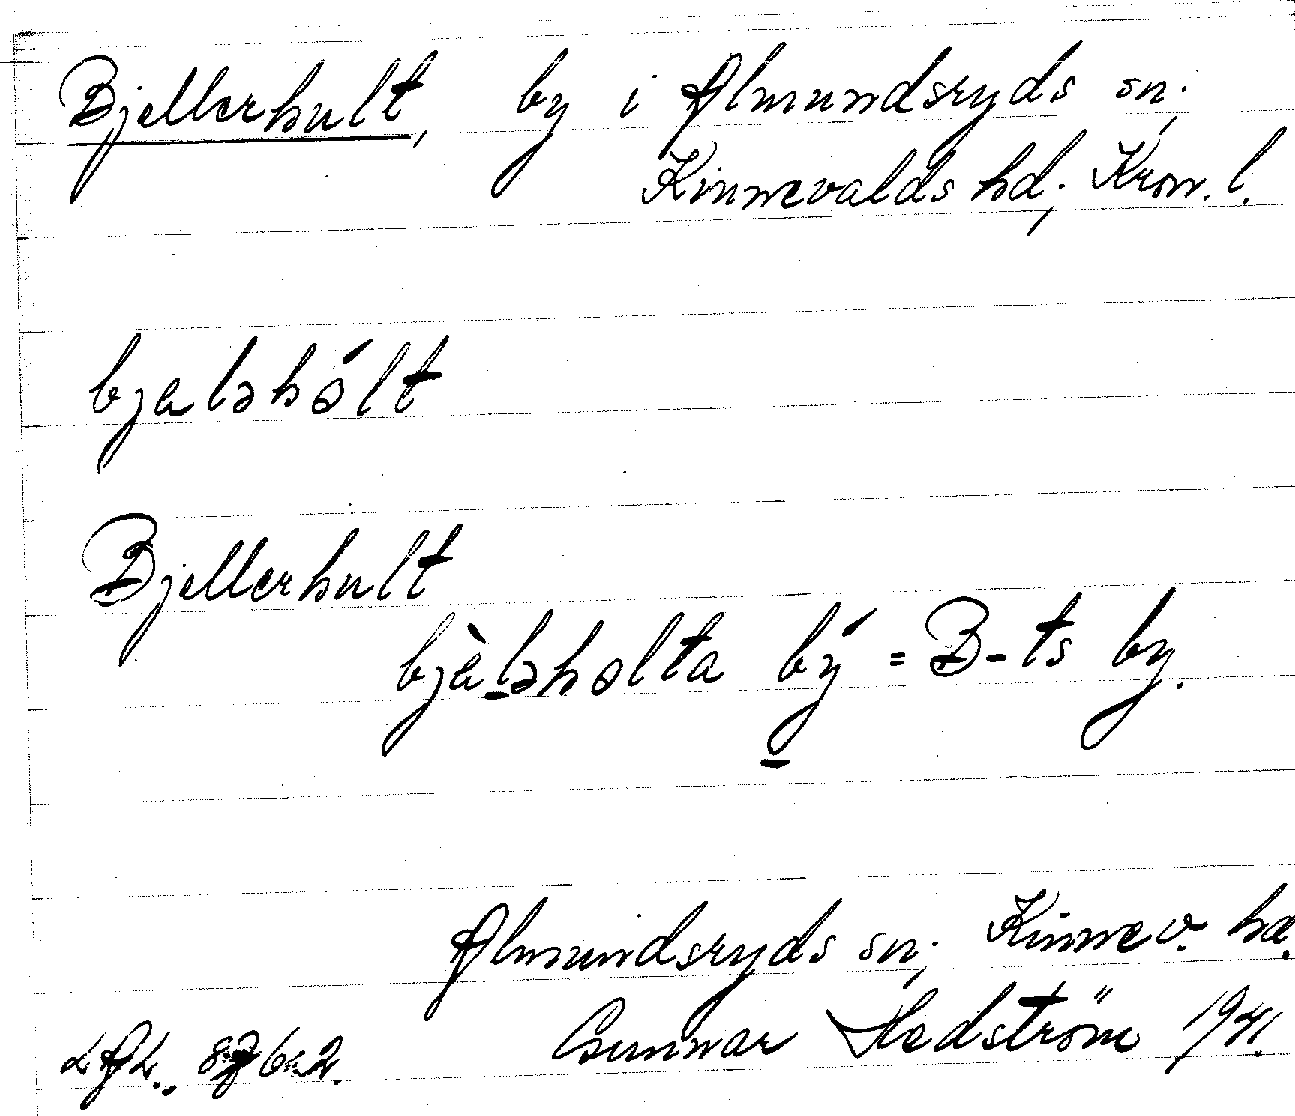 Bjellerhult, by i Almundsryds sn.
Kinnevalds hd; Kron. l.
bjaləhólt
Bjellerhult
bjàləholta bý = B-ts by.
Almundsryds sn; Kinnev. hd.
Gunnar Hedström 1941.